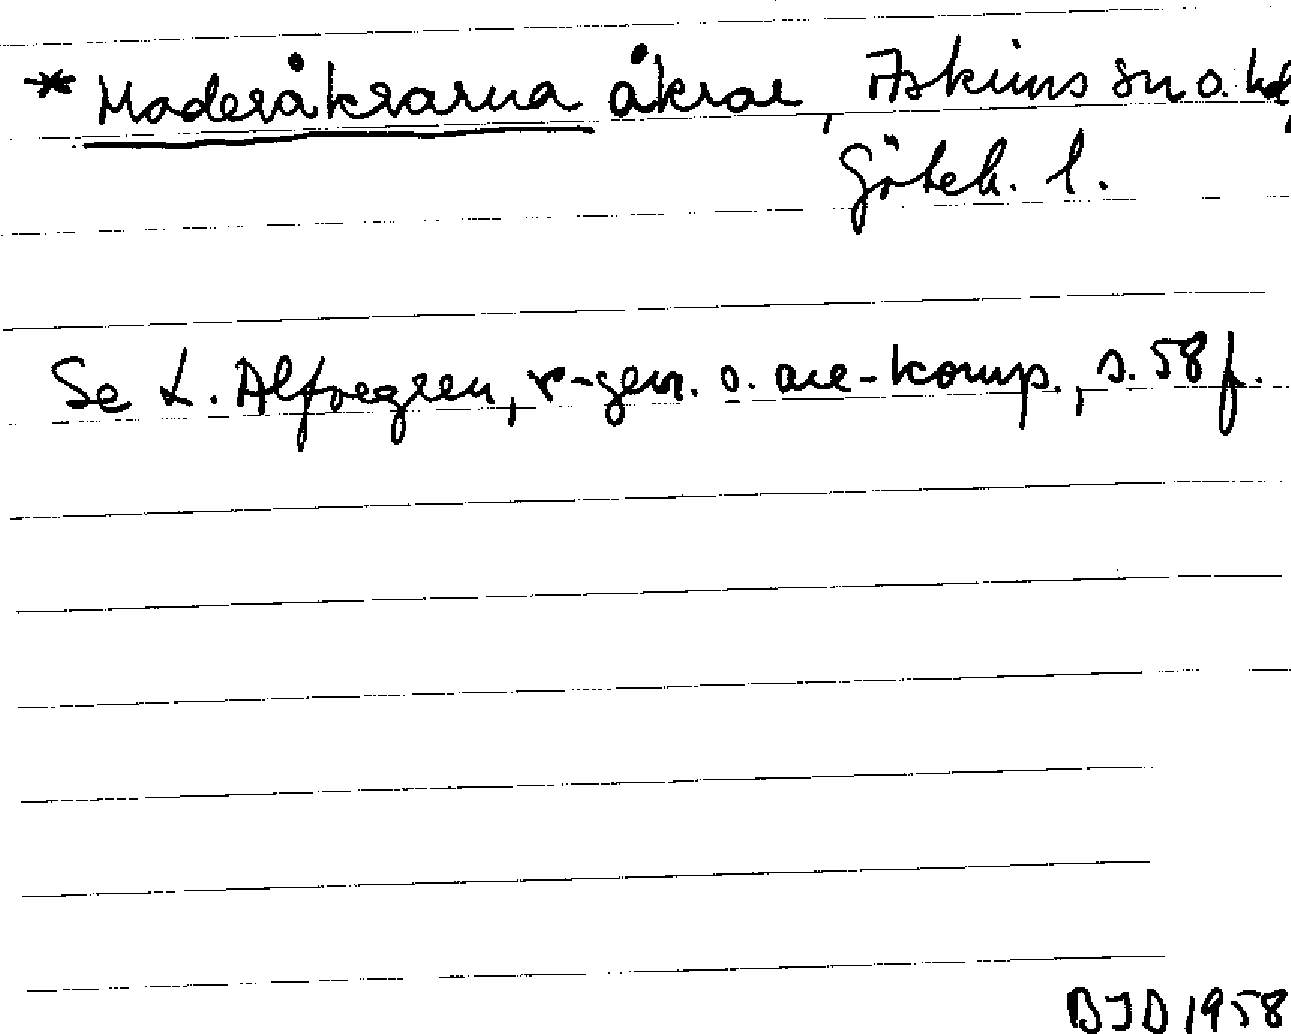 * Maderåkrarna åkrar, Askims sn o. hd,
Göteb. l.
Se L. Alfvegren, r-gen. o. are-komp., s. 58 f.
BJD 1958